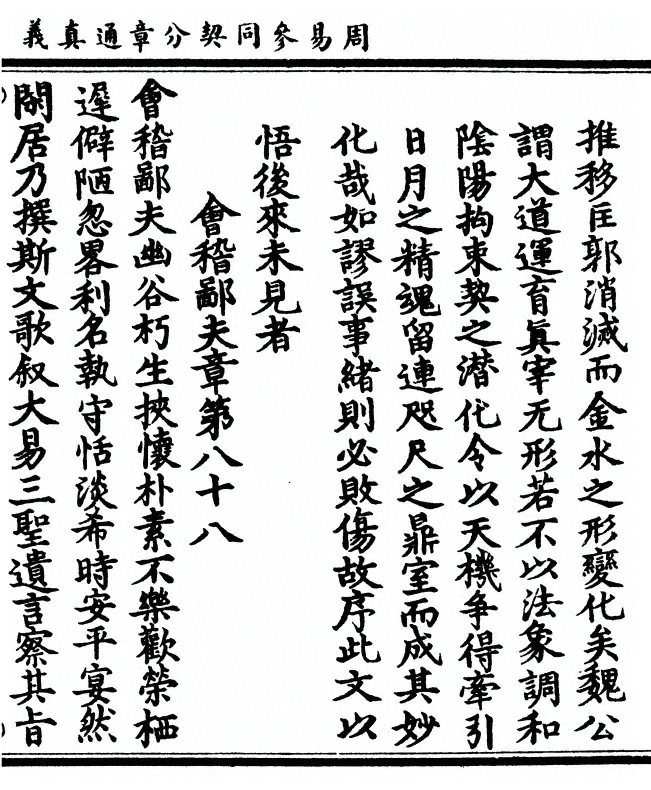 周易參同契分章通真義
推移匡郭消滅而金水之形變化矣魏公
謂大道運育眞宰无形若不以法象調和
陰陽拘束契之潜代令以天機争得牽引
日月之精魂留連咫尺之鼎室而成其妙
化哉如謬誤事緒則必敗傷故序此文以
悟後來未見者
會稽鄙夫章第八十八
會稽鄙夫幽谷朽生挾懷朴素不樂歡榮栖
遲僻陋忽畧利名執守恬淡希時安平宴然
閑居乃撰斯文歌叙大易三聖遺言察其旨